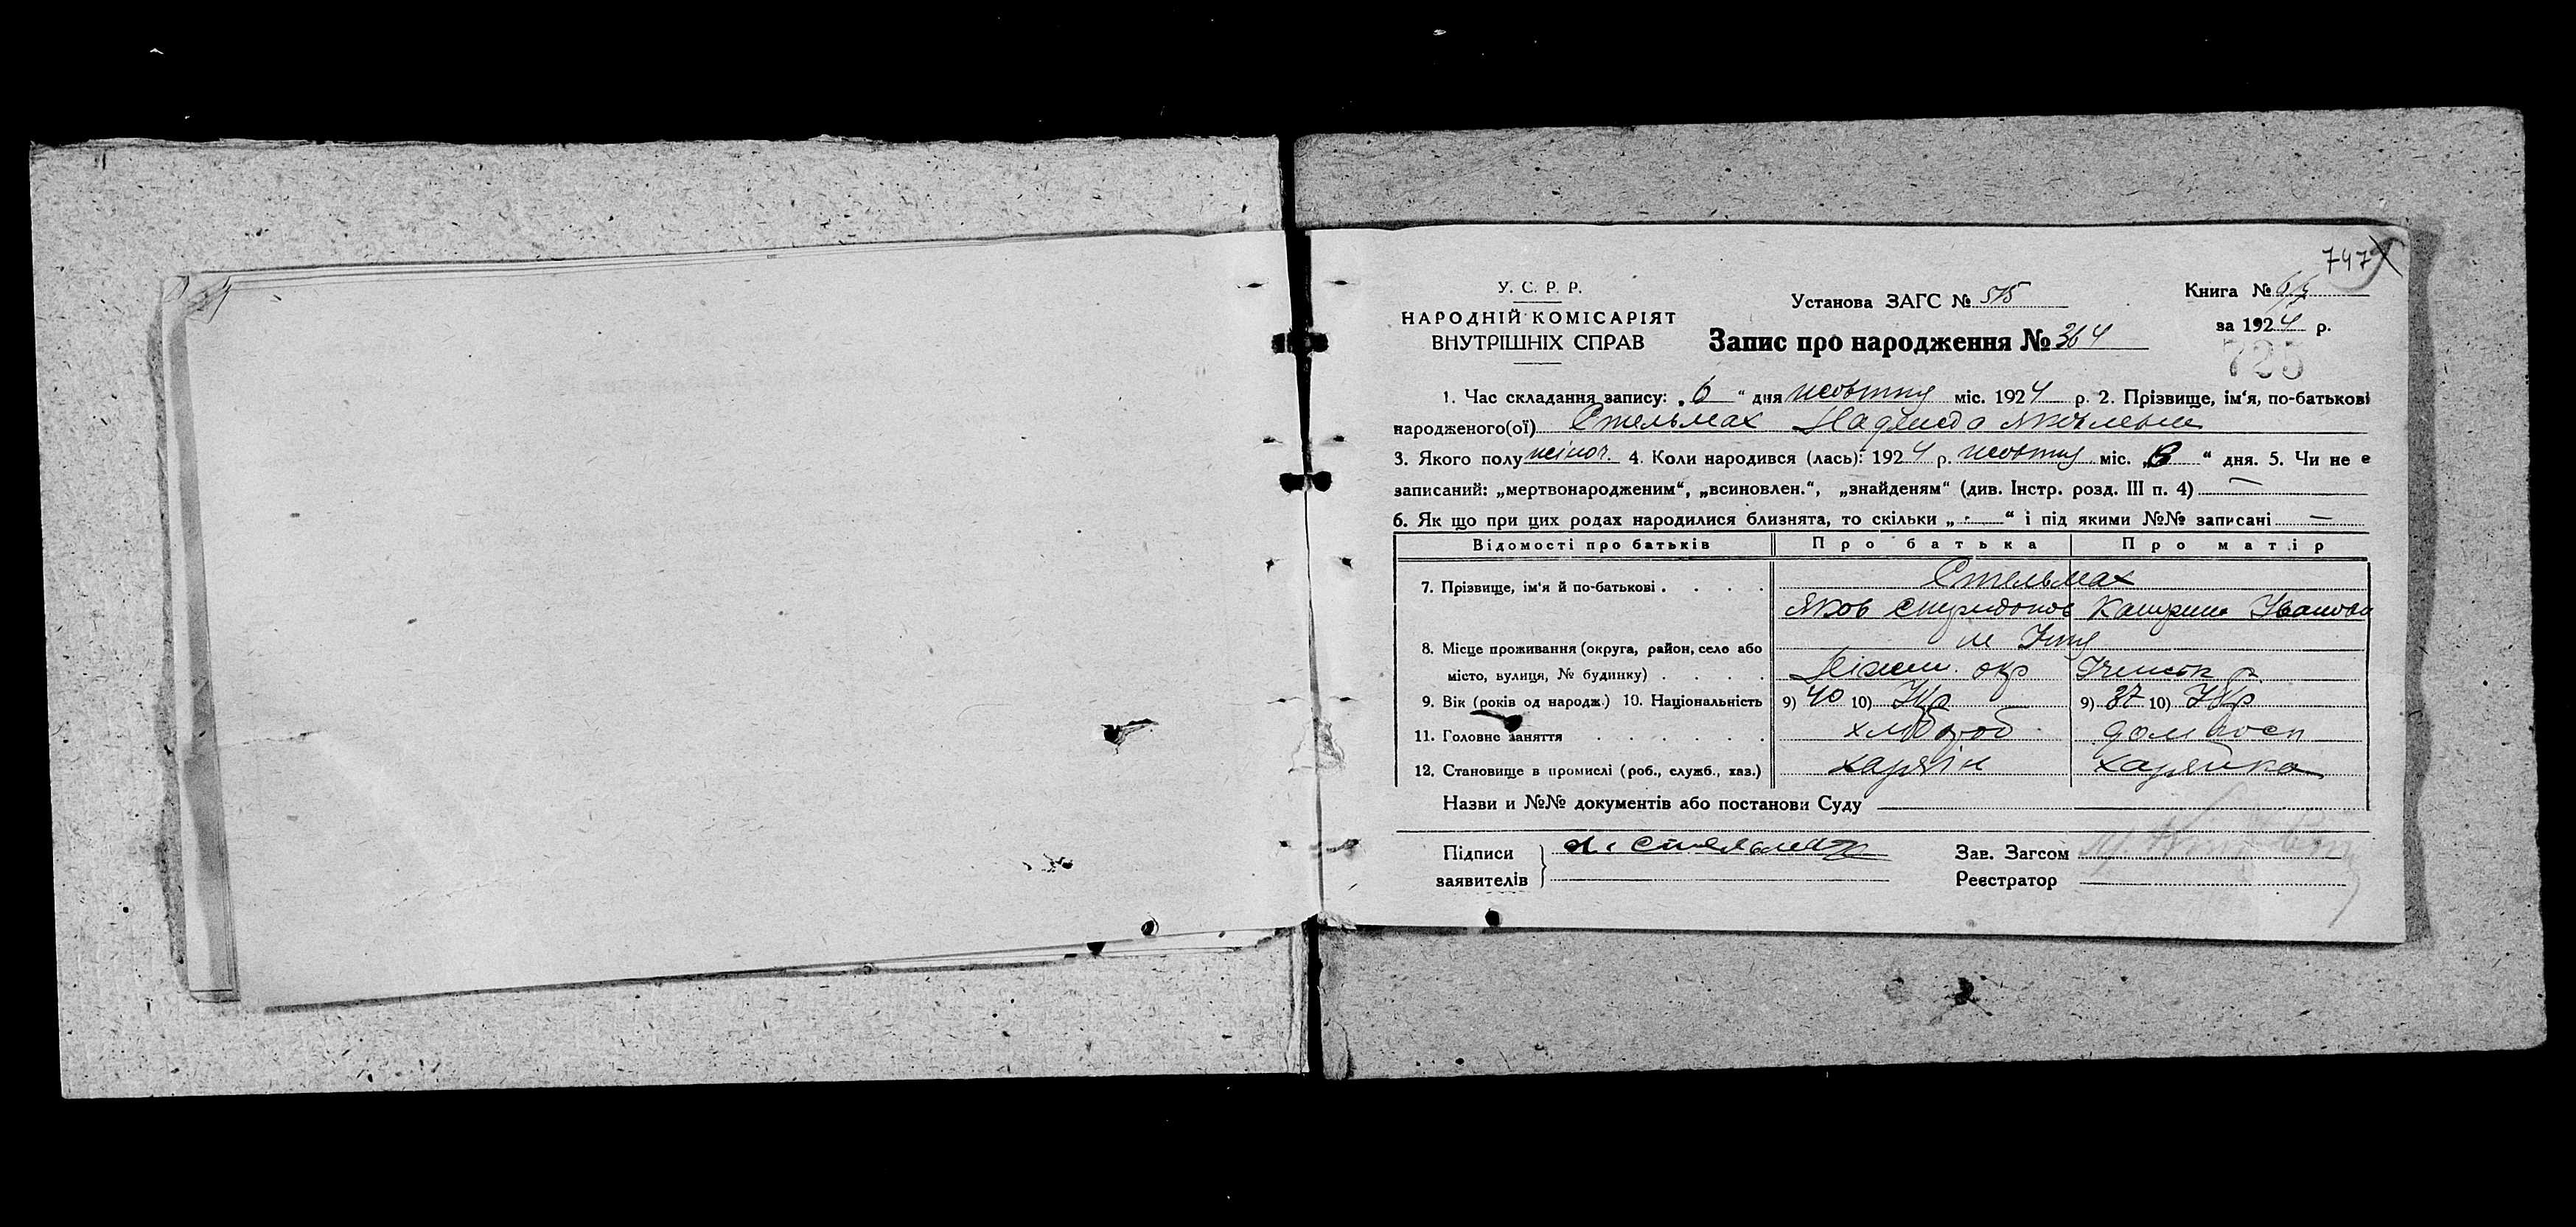 747
У. С. Р. Р.
НАРОДНІЙ КОМІСАРІЯТ
ВНУТРІШНІХ СПРАВ
Установа ЗАГС № 515
Запис про народження № 364
Книга №
за 1924 р.
725
1. Час складання запису: „6“ дня жовтня міс. 1924 р. 2. Прізвище, ім‘я, по-батькові
народженого(ої) Стельмах Надежда Яковлевна
3. Якого полу жіноч. 4. Коли народився (лась): 1924 р. жовтня міс. „6“ дня. 5. Чи не є
записаний: „мертвонародженим“, „всиновлен.“, „знайденям“ (див. Інстр. розд. III п. 4) —
6. Як що при цих родах народилися близнята, то скільки „-“ і під якими №№ записані —
Відомості про батьків Про батька Про матір
7. Прізвище, ім‘я й по-батькові . . . . Стельмах
Яков Спиридонов Катерина Іванова
м Ічня
8. Місце проживання (округа, район, село або
місто, вулиця, № будинку) . . . . Ніжин. окр Ічнянськ р
9. Вік (років од народж.) 10. Національність 9) 40 10) Укр 9) 37 10) Укр
11. Головне заняття . . . . . . хлібороб домгосп
12. Становище в промислі (роб., служб., хаз.) хазяїн хазяйка
Назви и №№ документів або постанови Суду
Підписи Стельмах
заявителів
Зав. Загсом
Реєстратор